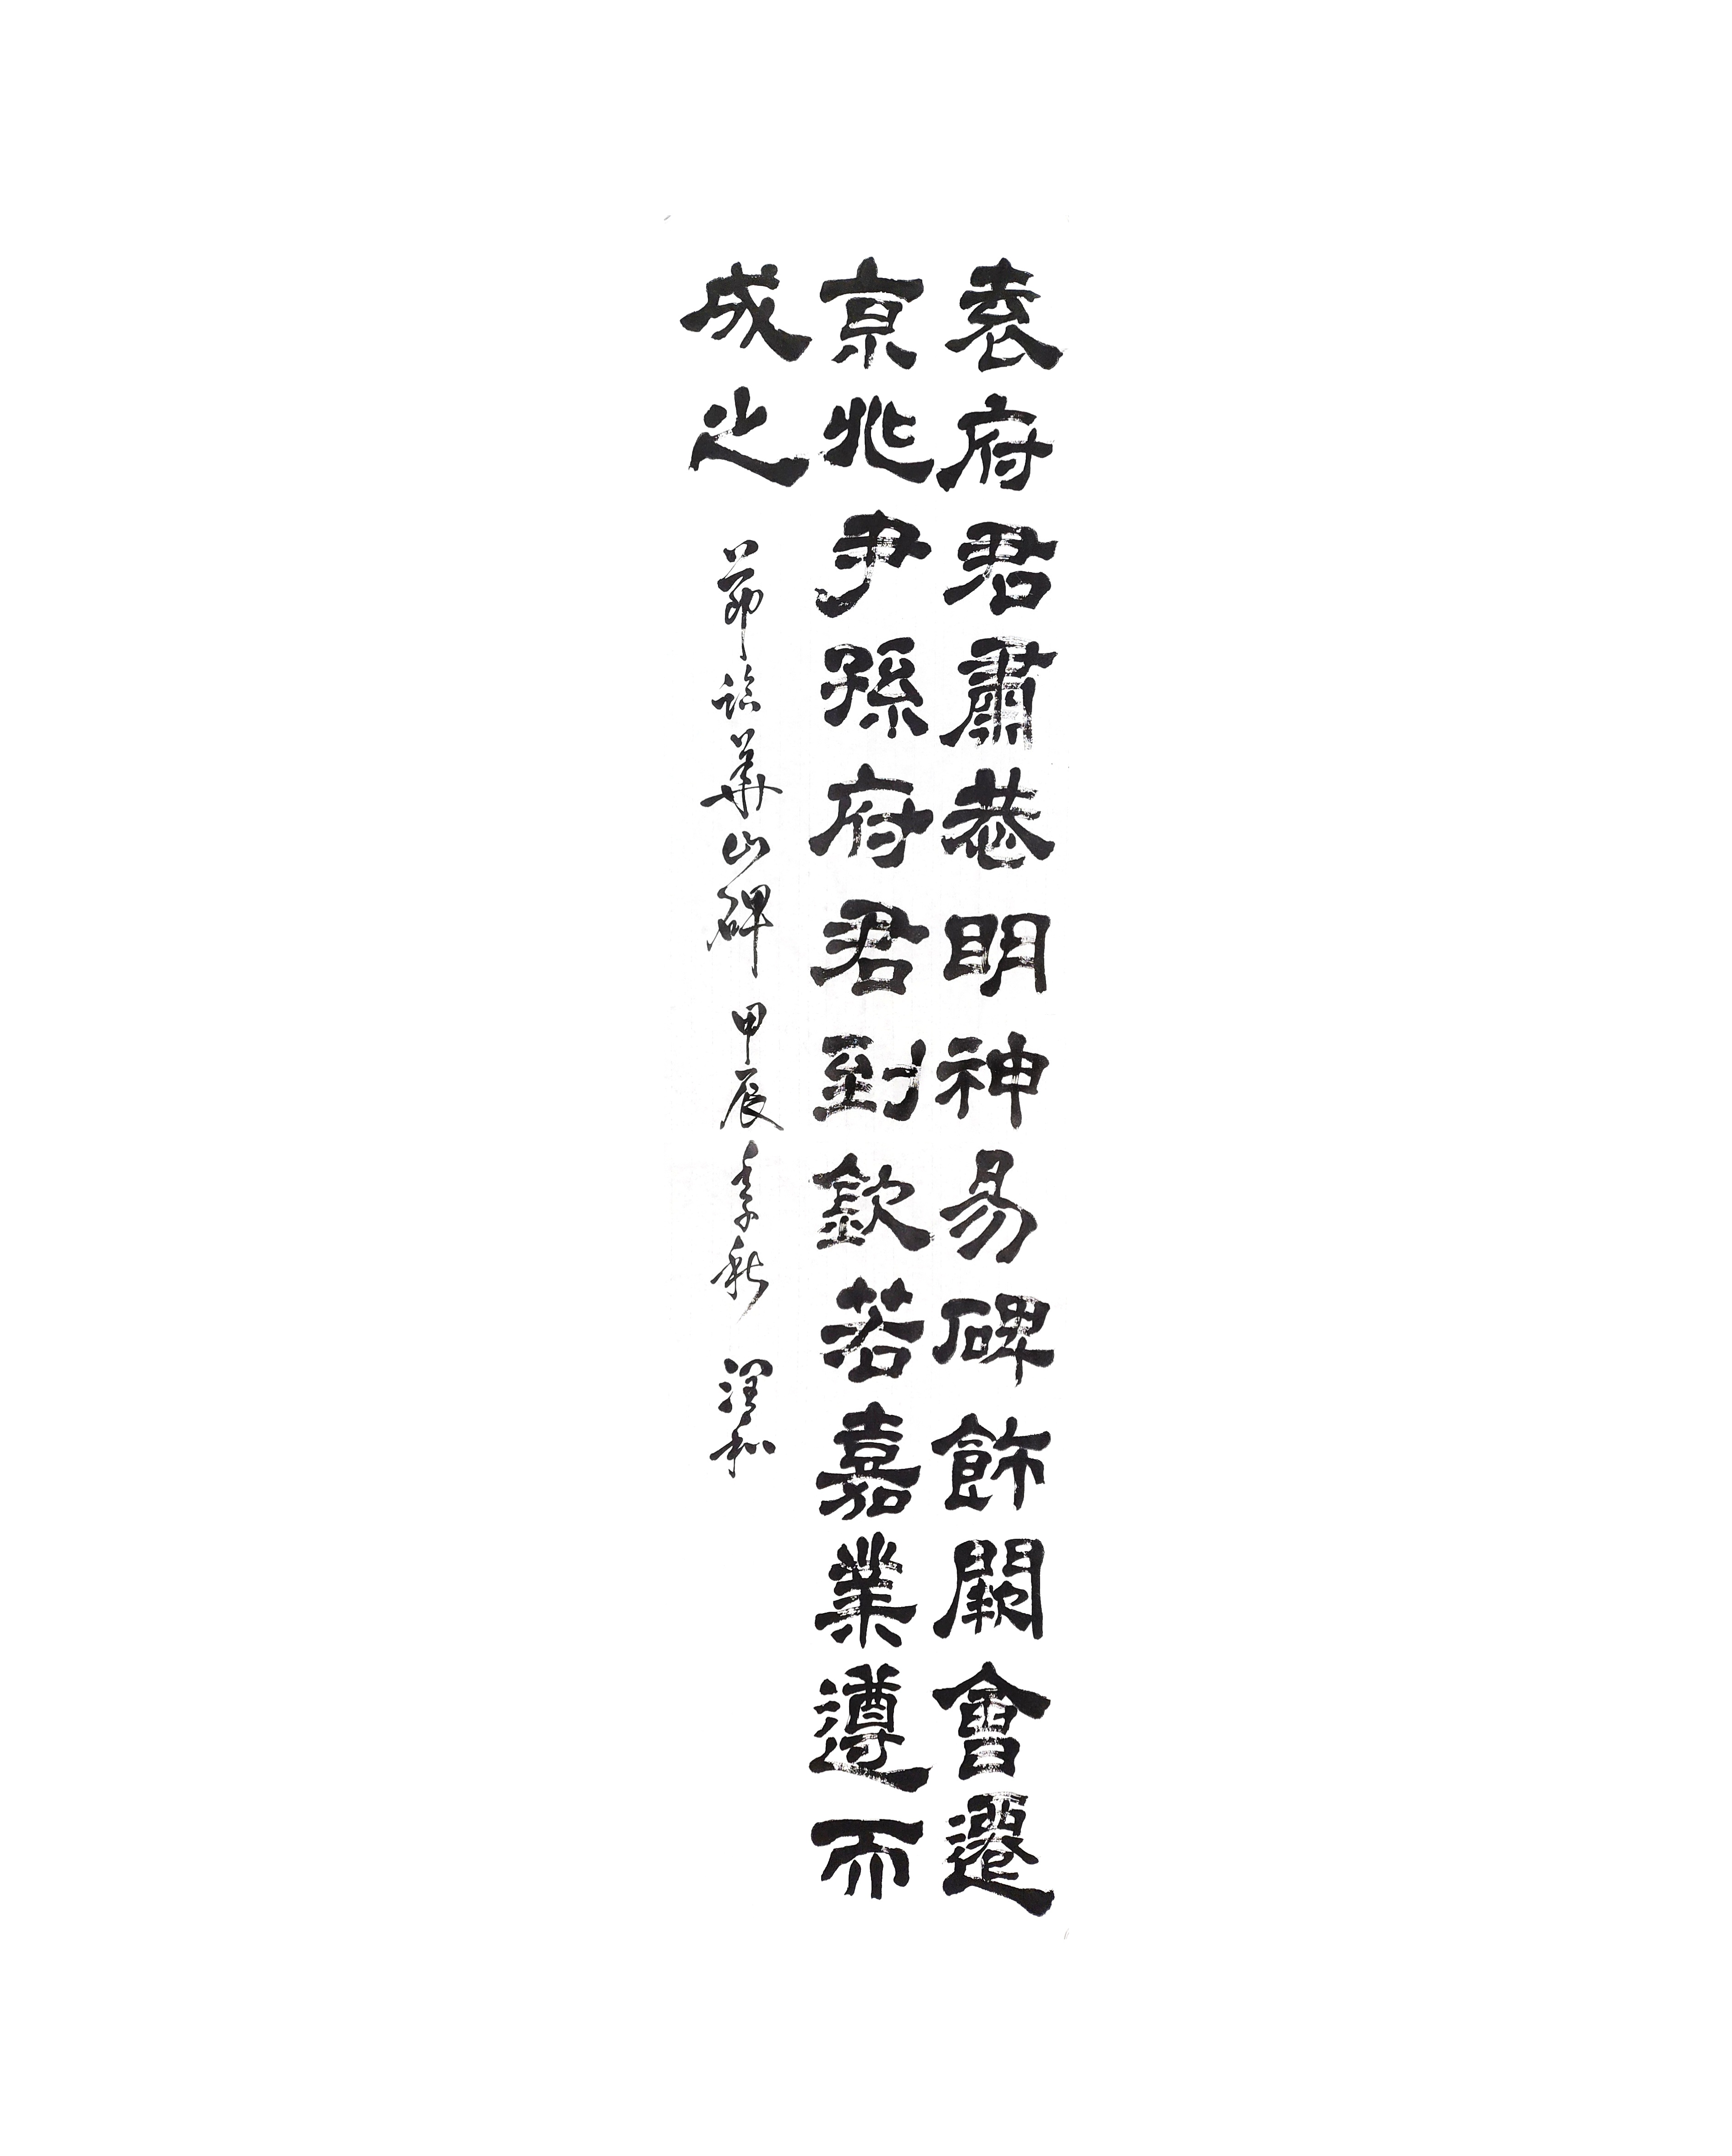 袁府君肅恭明神易碑飾闕會遷
京兆尹孫府君到欽若嘉業遵而
成之
節臨華山碑 甲辰季秋 澤和